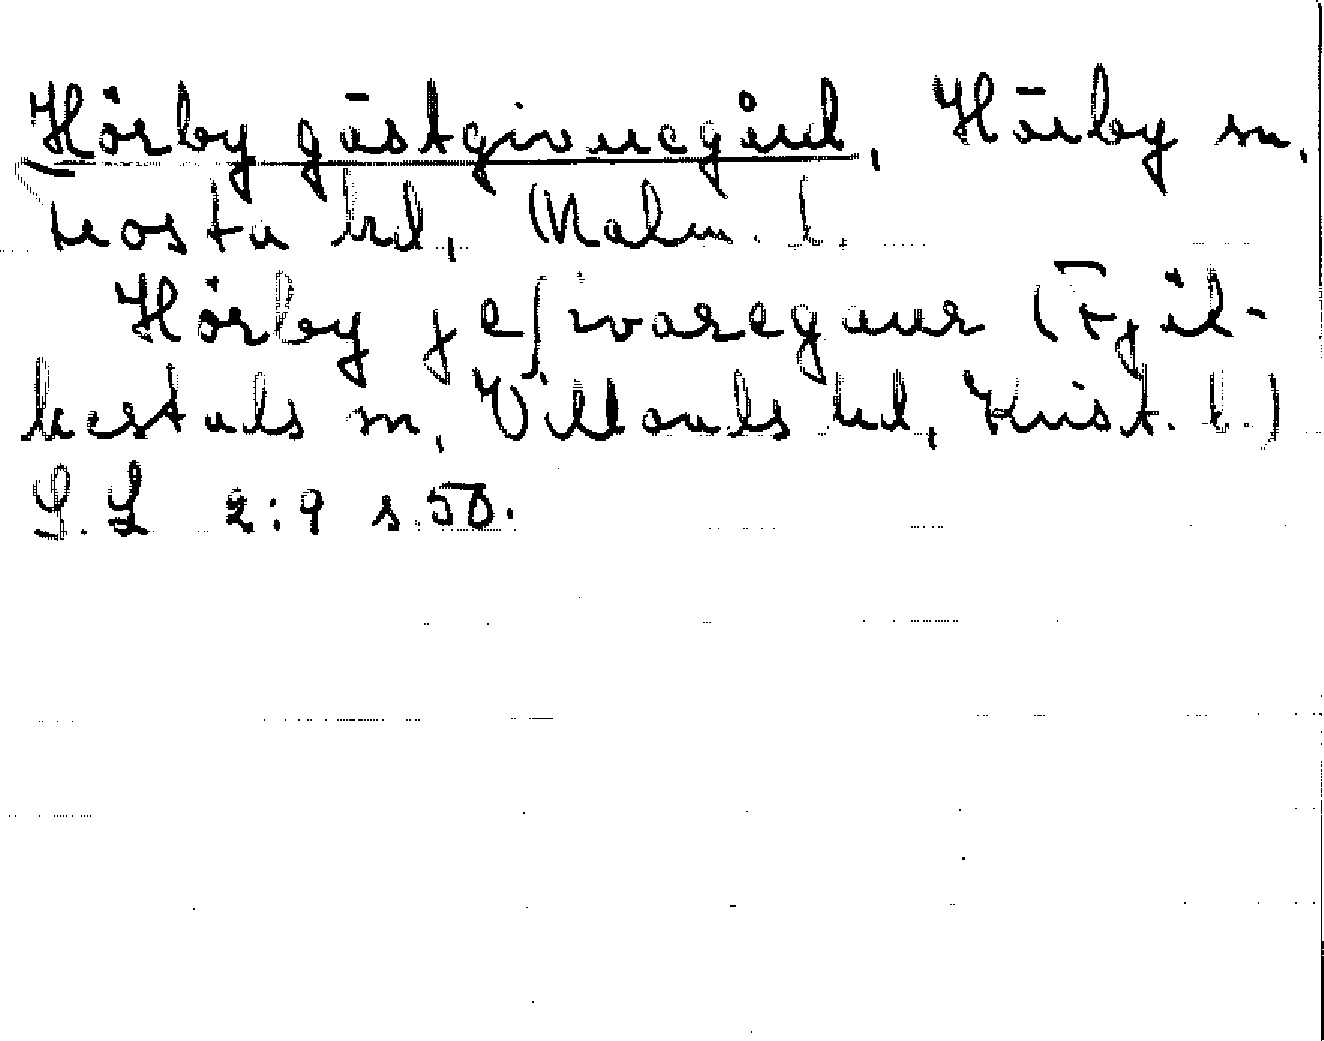 Hörby gästgivuegård, Hörby sn,
Frosta hd, Malm. l.
Hörby jeſivaregaur (Fjäl-
kestads sn, Villands hd, Krist. l.)
S.L 2:9 s.50.